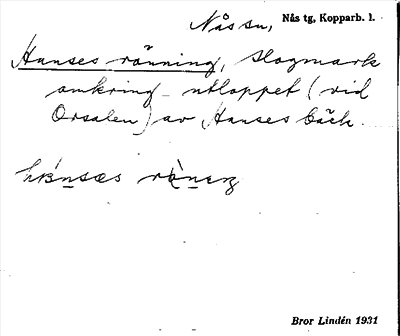 Nås sn, Nås tg, Kopparb. l.
Hanses ränning, slogmark
omkring utloppet (vid
Orsalen) av Hanses bäck.
Bror Lindén 1931